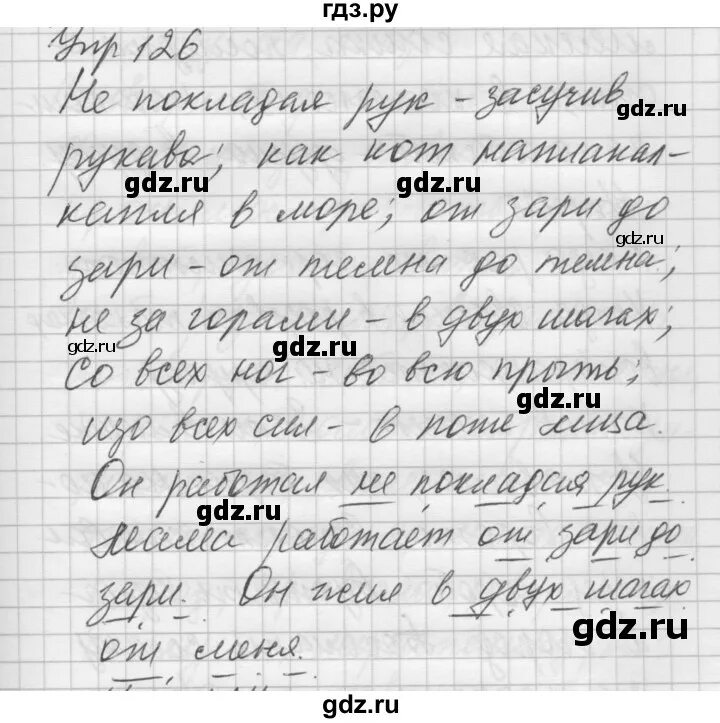 гдз.ру
Упр 126
Не покладая рук - засучив
рукава; как кот наплакал-
gdz.ru gdz.ru
капля в море; от зари до
gdz.ru
зари - от темна до темна;
не за горами - в двух шагах;
gdz.ru gdz.ru
Со всех ног - во всю прыть;
gdz.ru
изо всех сил - в поте лица.
Он работал не покладая рук.
gdz.ru
Мама работает от зари до
зари. Он жил в двух шагах
gdz.ru
от меня.
gdz.ru